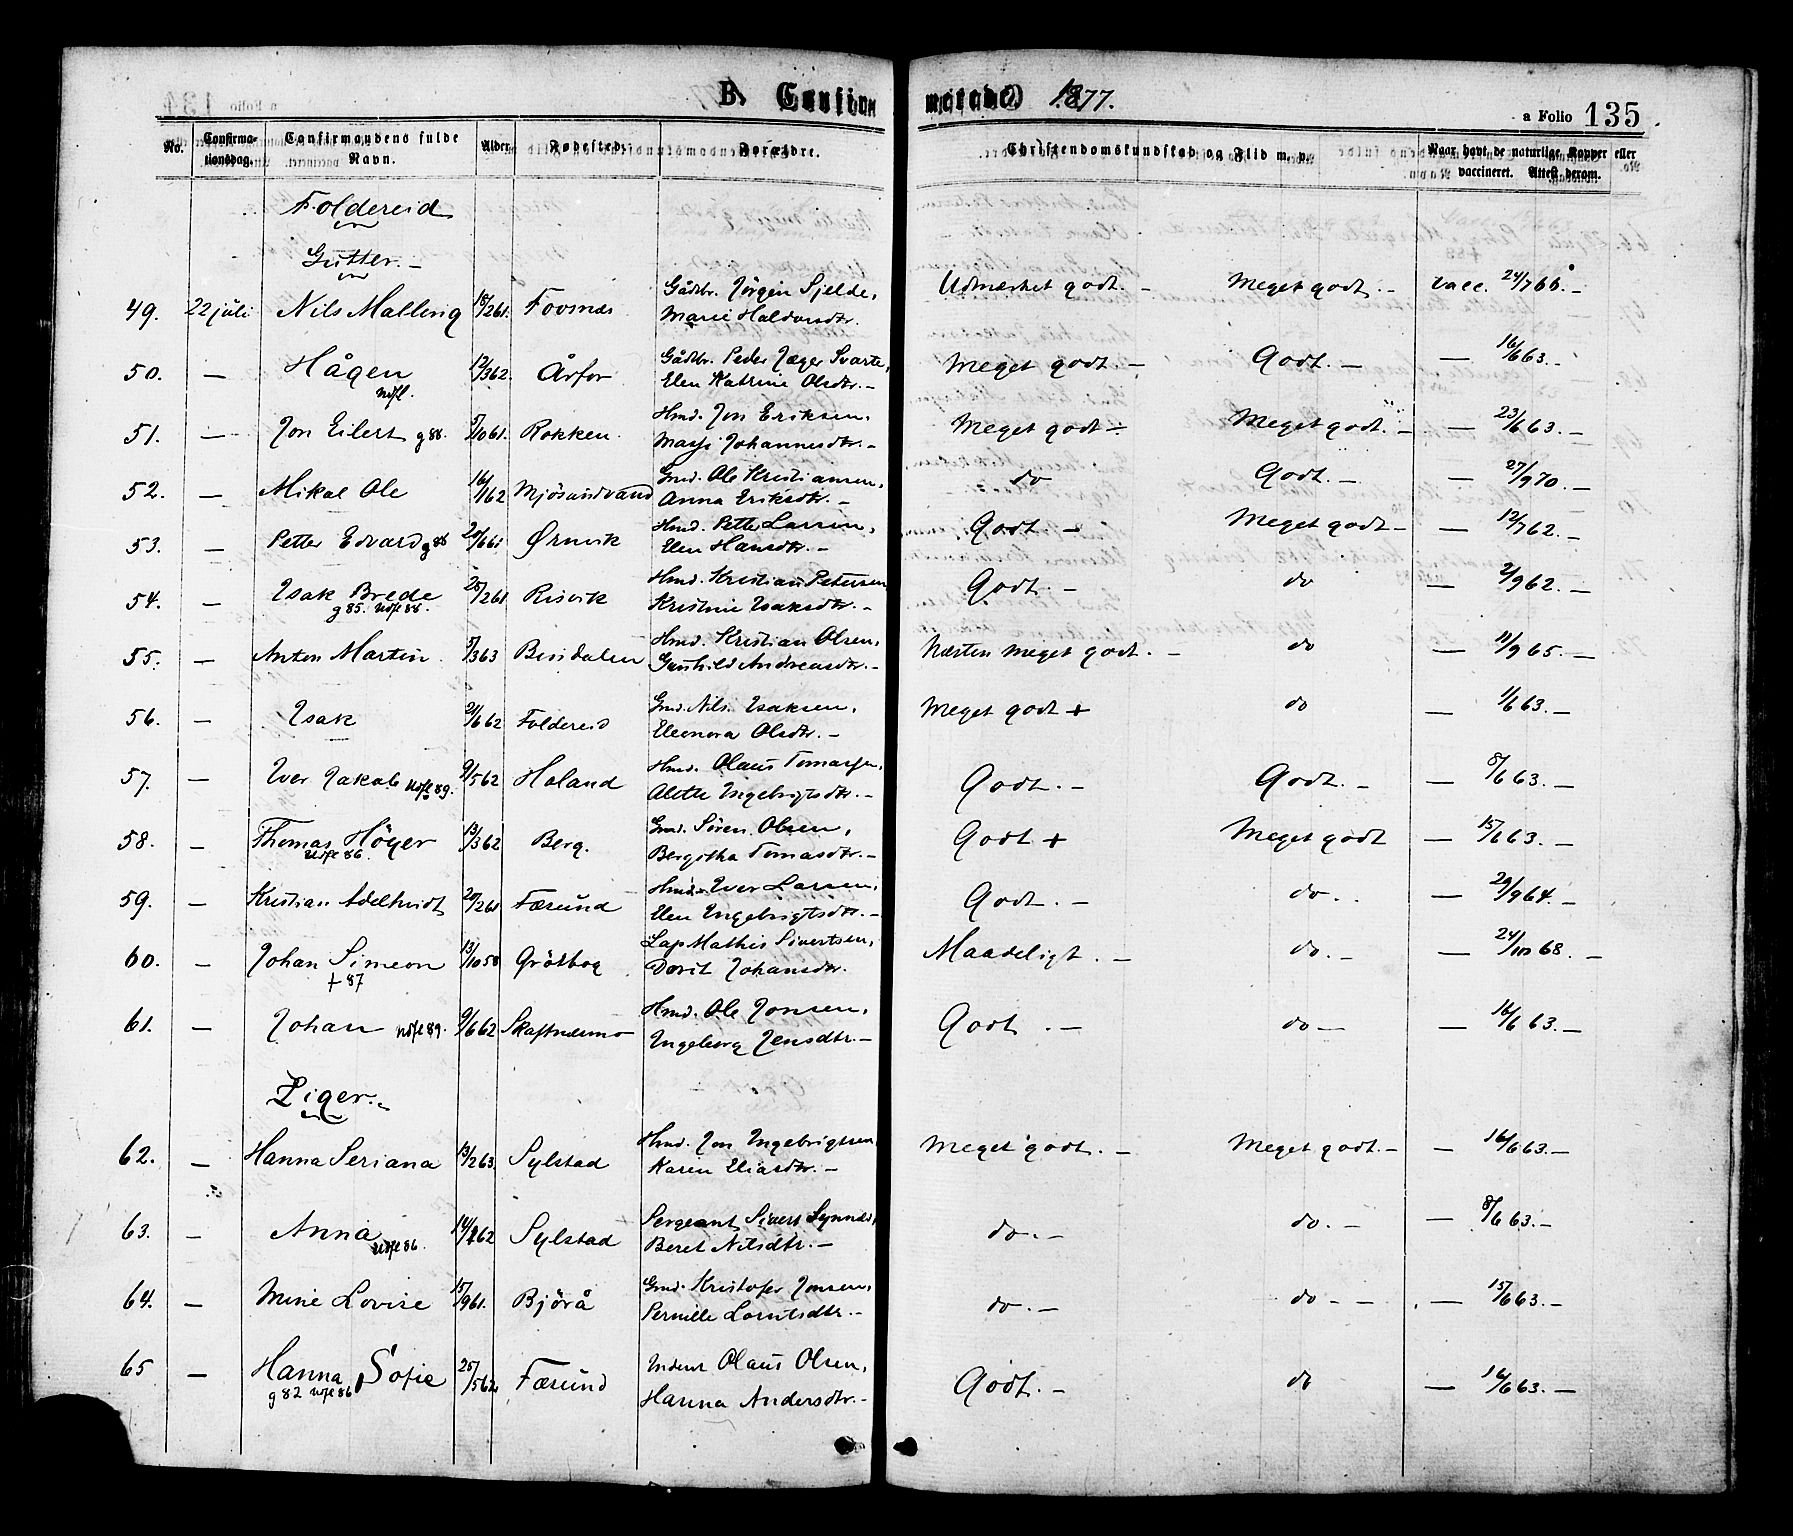 B. Confirmerede 1877.
a Folio 135
No. Confirma-tionsdag. Confirmandens fulde Navn. Alder. Fødested. Forældre. Christendomskundskab og Flid m. v. Naar havt de naturlige Kopper eller vaccineret. Attest derom.
Foldereid
Gutter. -
49. 22 juli Nils Malling 18/2 61. Fovsnæs Gådbr. Jørgen Sjelde, Udmærket godt. - Meget godt. - vacc. 24/7 66. -
Marie Haldorsdtr.
50. — Hågen 12/3 62. Årfor Gådbr. Peder Jæger Svarte, Meget godt. - Godt. - — 16/6 63. -
Udfl. Elen Katrine Olsdtr. -
51. — Jon Eilert g 88. 5/10 61. Rokken. Hmd. Jon Eriksen, Meget godt ÷ Meget godt. - — 23/6 63. -
Marje Johannesdtr. -
52. — Mikal Ole 16/1 62 Mjösundvand Gmd. Ole Kristiansen, do Godt. - — 27/9 70. -
Anna Eriksdtr. -
53. — Petter Edvard g 86 20/6 61 Ørnvik Hmd. Petter Larsen, Godt - Meget godt - — 12/7 62. -
Elen Hansdtr. -
54. — Isak Brede 25/2 61 Risvik Hmd. Kristian Petersen Godt. - do — 2/9 62. -
g 85. Udfl 86. Kristine Isaksdtr. -
55. — Anton Martin. 5/3 63 Bindalen Hmd. Kristian Olsen, Næsten meget godt. - do — 11/9 65. -
Gunhild Andreasdtr. -
56. — Isak 21/6 62 Foldereid Gmd. Nils Isaksen, Meget godt + do — 1/6 63. -
Eleonora Olsdtr. -
57. — Iver Jakob Udfl 89. 9/5 62 Haland Hmd. Olaus Tomassen, Godt. - Godt. - — 8/6 63. -
Alette Ingebrigtsdtr. -
58. — Thomas Höyer 13/3 62 Berg. Gmd. Sören Olsen, Godt + Meget godt — 15/6 63. -
Udfl 86. Bergitha Tomasdtr. -
59. — Kristian Adelhvidt 20/2 61 Færsund Hmd. Iver Larsen, Godt. - do. — 29/9 64. -
Elen Ingebrigtsdtr. -
60. — Johan Simeon 13/10 58 Grötbog Lap Mathis Sivertsen, Maadeligt. - do. - — 24/10 68. -
+ 87 Dorit Johansdtr.
61. — Johan Udfl 89. 9/6 62 Skaftnesmo Hmd. Ole Jonsen, Godt. - do - — 16/6 63. -
Ingeborg Jensdtr. -
Piger. -
62. — Hanna Seriana 13/2 63. Sylstad Hmd. Jon Ingebrigtsen Meget godt. - Meget godt. - — 16/6 63. -
Karen Eliasdtr. -
63. — Anna 14/2 62 Sylstad Sergeant Sivert Synnes, do. - do. - — 8/6 63. -
Udfl 86. Beret Nilsdtr. -
64. — Mine Lovise 15/9 61. Björå Gmd. Kristofer Jonsen, do. - do - - — 15/6 63. -
Pernille Lorntsdtr. -
65 — Hanna Sofie 25/5 62. Færsund Inderst Olaus Olsen, Godt. - do — 16/6 63. -
g 82 Udfl 86 Hanna Andersdtr. -